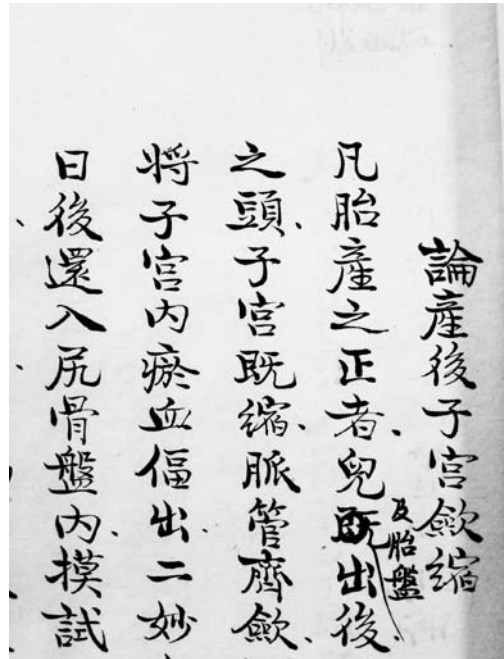 論產後子宮歛縮
凡胎產之正者、兒既出後、
及胎盤
之頭、子宮既縮、脈管齊歛、
將子宮内瘀血偪出、二妙
日後還入尻骨盤内、摸試